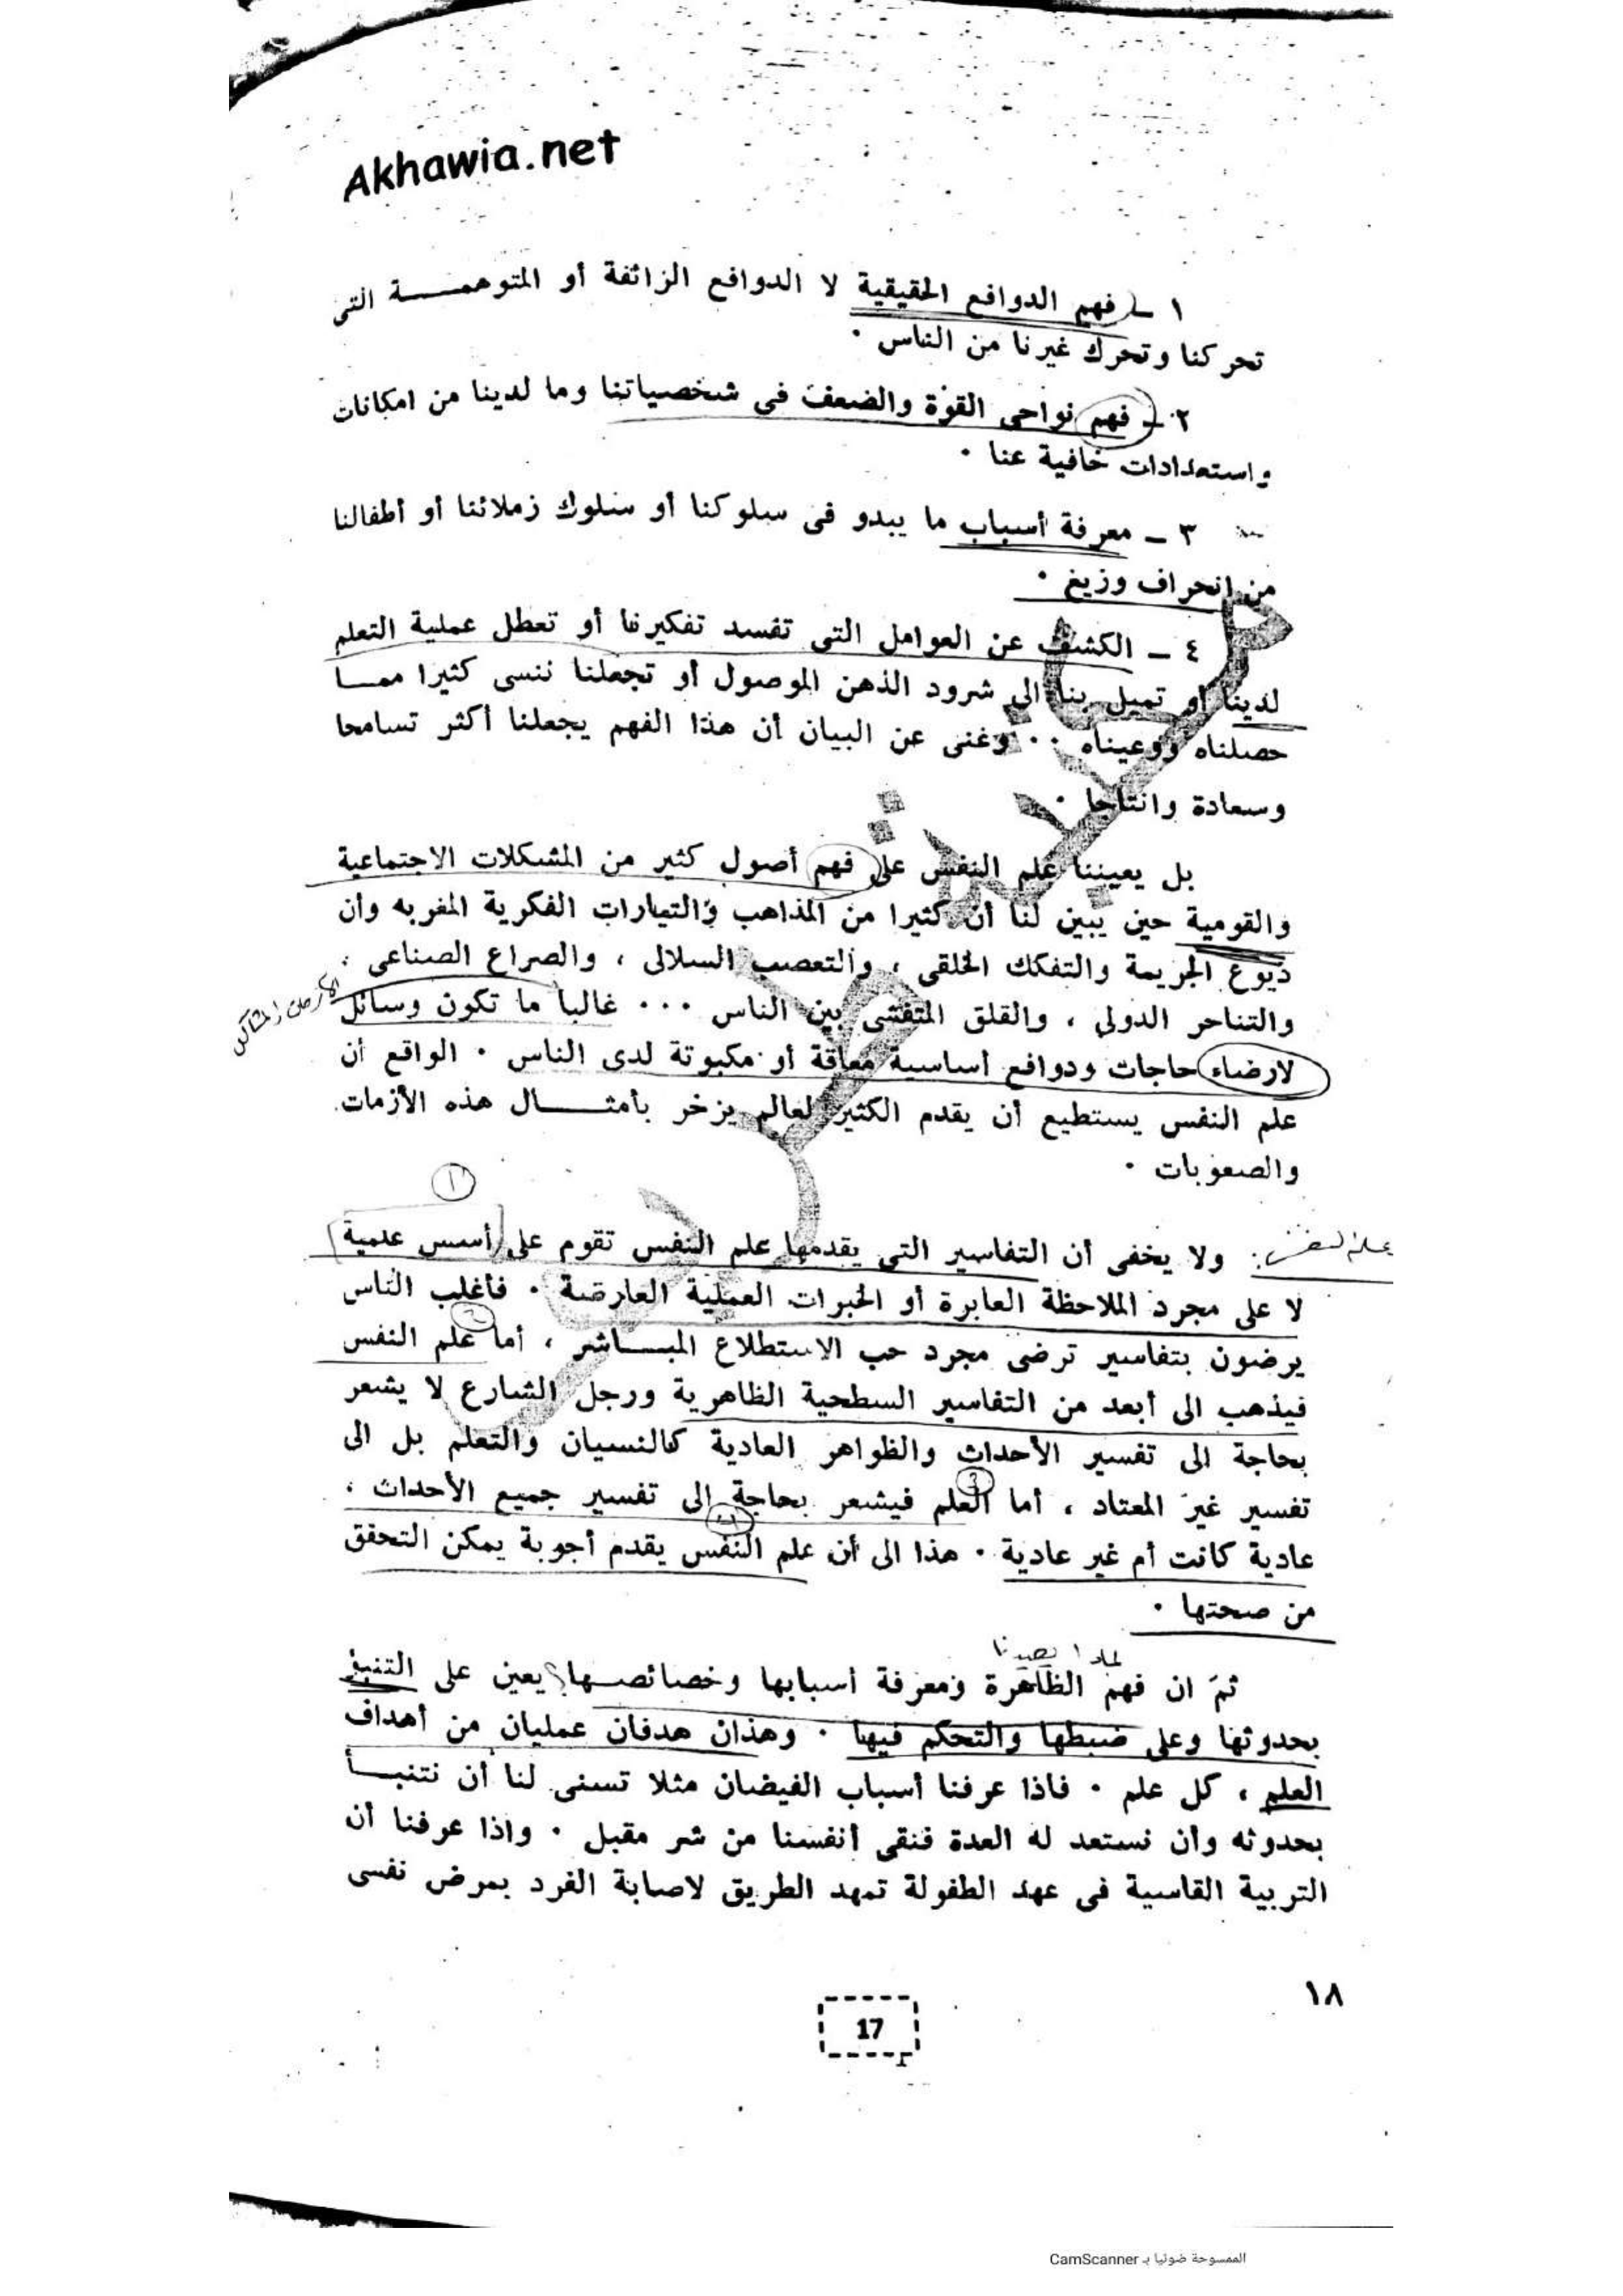 Akhawia.net
١ ــ فهم الدوافع الحقيقية لا الدوافع الزائفة أو المتوهمــــة التى
تحركنا وتحرك غيرنا من الناس ٠
٢ ــ فهم نواحى القوة والضعف فى شخصياتنا وما لدينا من امكانات
واستعدادات خافية عنا ٠
٣ ــ معرفة أسباب ما يبدو فى سلوكنا أو سلوك زملائنا أو أطفالنا
من انحراف وزيغ ٠
٤ ــ الكشف عن العوامل التى تفسد تفكيرنا أو تعطل عملية التعلم
لدينا أو تميل بنا الى شرود الذهن الموصول أو تجعلنا ننسى كثيرا ممــا
حصلناه ووعيناه ٠٠ وغنى عن البيان أن هذا الفهم يجعلنا أكثر تسامحا
وسعادة وانتاجا ٠
بل يعيننا علم النفس على فهم أصول كثير من المشكلات الاجتماعية
والقومية حين يبين لنا أن كثيرا من المذاهب والتيارات الفكرية المغربه وأن
ذيوع الجريمة والتفكك الخلقى ، والتعصب السلالى ، والصراع الصناعى ،
والتناحر الدولى ، والقلق المتفشى بين الناس ٠٠٠ غالبا ما تكون وسائل
لارضاء حاجات ودوافع أساسية معاقة أو مكبوتة لدى الناس ٠ الواقع أن
علم النفس يستطيع أن يقدم الكثير لعالم يزخر بأمثـــال هذه الأزمات
والصعوبات ٠
١
علم النفس : ولا يخفى أن التفاسير التى يقدمها علم النفس تقوم على أسس علمية
لا على مجرد الملاحظة العابرة أو الخبرات العملية العارضة ٠ فأغلب الناس
يرضون بتفاسير ترضى مجرد حب الاستطلاع المبـــاشر ، أما علم النفس
فيذهب الى أبعد من التفاسير السطحية الظاهرية ورجل الشارع لا يشعر
بحاجة الى تفسير الأحداث والظواهر العادية كالنسيان والتعلم بل الى
تفسير غير المعتاد ، أما العلم فيشعر بحاجة الى تفسير جميع الأحداث ،
عادية كانت أم غير عادية ٠ هذا الى أن علم النفس يقدم أجوبة يمكن التحقق
من صحتها ٠
لماذا
ثم ان فهم الظاهرة ومعرفة أسبابها وخصائصــها يعين على التنبؤ
بحدوثها وعلى ضبطها والتحكم فيها ٠ وهذان هدفان عمليان من أهداف
العلم ، كل علم ٠ فاذا عرفنا أسباب الفيضان مثلا تسنى لنا أن نتنبــأ
بحدوثه وأن نستعد له العدة فنقى أنفسنا من شر مقبل ٠ واذا عرفنا أن
التربية القاسية فى عهد الطفولة تمهد الطريق لاصابة الفرد بمرض نفسى
١٨
17
الممسوحة ضوئيا بـ CamScanner